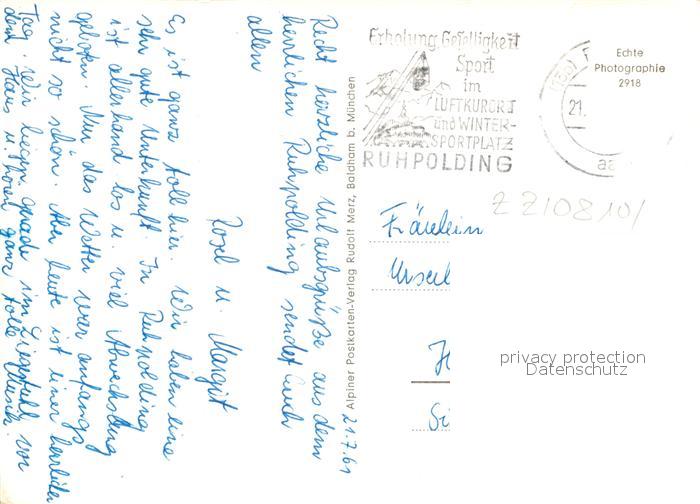 21.7.61
Recht herzliche Urlaubsgrüße aus dem
herrlichen Ruhpolding sendet Euch
allen
Rosel u. Margit
Es ist ganz toll hier. Wir haben eine
sehr gute Unterkunft. In Ruhpolding
ist allerhand los u. viel Abwechslung
geboten. Nur das Wetter war anfangs
nicht so schön. Aber heute ist einer herrlicher
Tag. Wir liegen gerade im Liegestuhl vor
dem Haus u. hören ganz tolle Musik.
Alpiner Postkarten-Verlag Rudolf Merz, Baldham b. München
Erholung, Geselligkeit
Sport
im
LUFTKURORT
und WINTER-
SPORTPLATZ
RUHPOLDING
21.
aa
Echte
Photographie
2918
ZZ10810/
Fräulein
Ursel
H
Si
privacy protection
Datenschutz